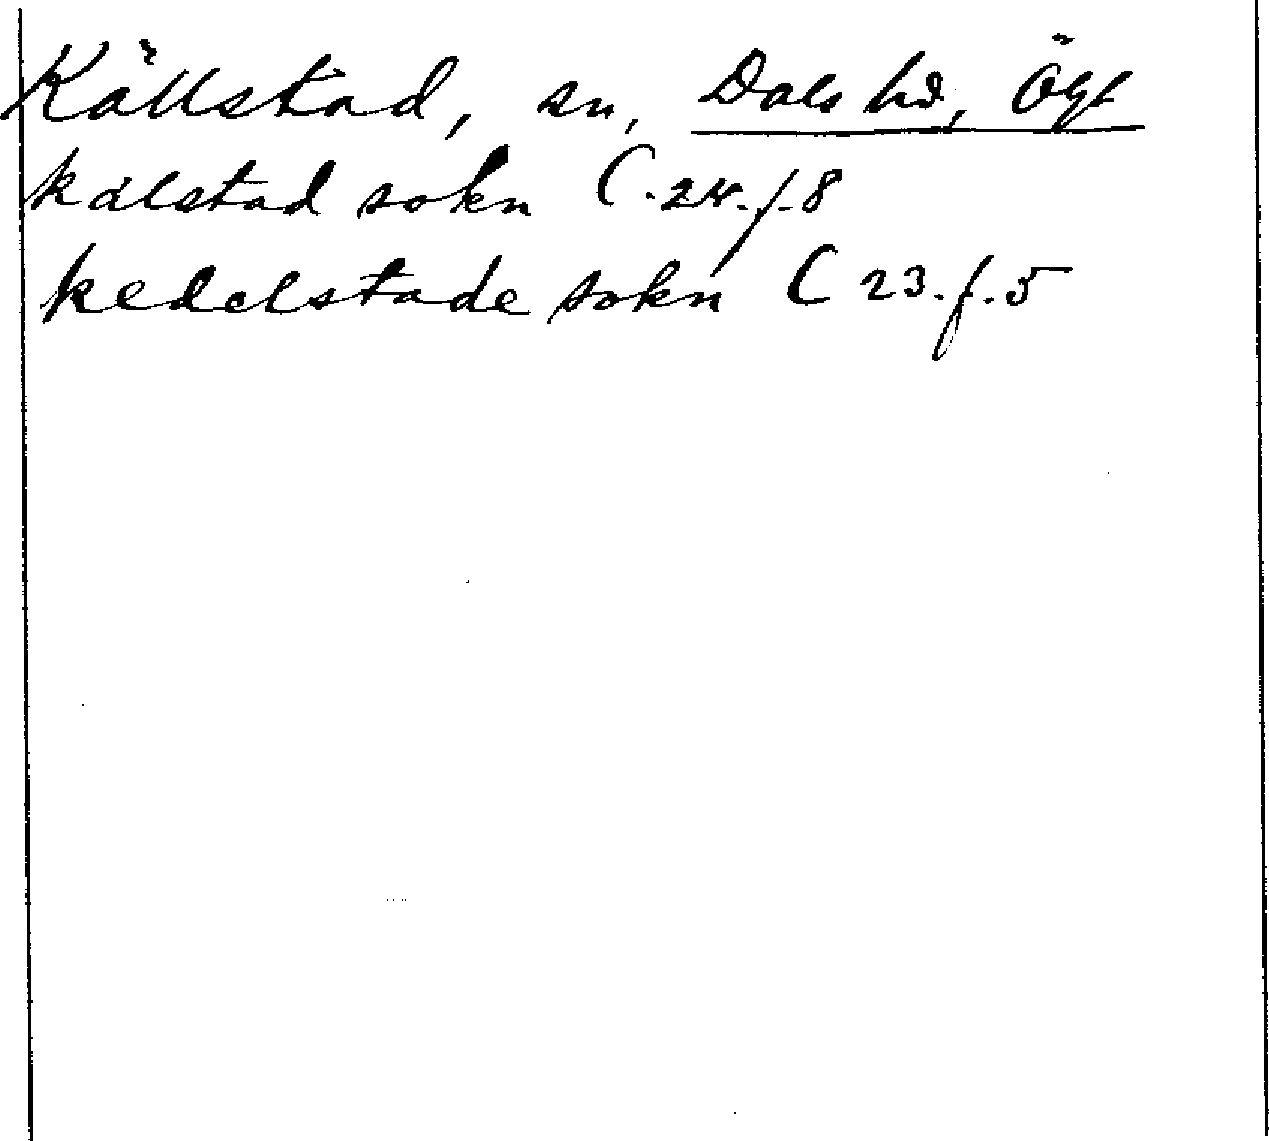 Källstad, sn, Dals hd, Ögl
kalstad sokn C. 24. f. 8
kedelstade sokn C 23. f. 5